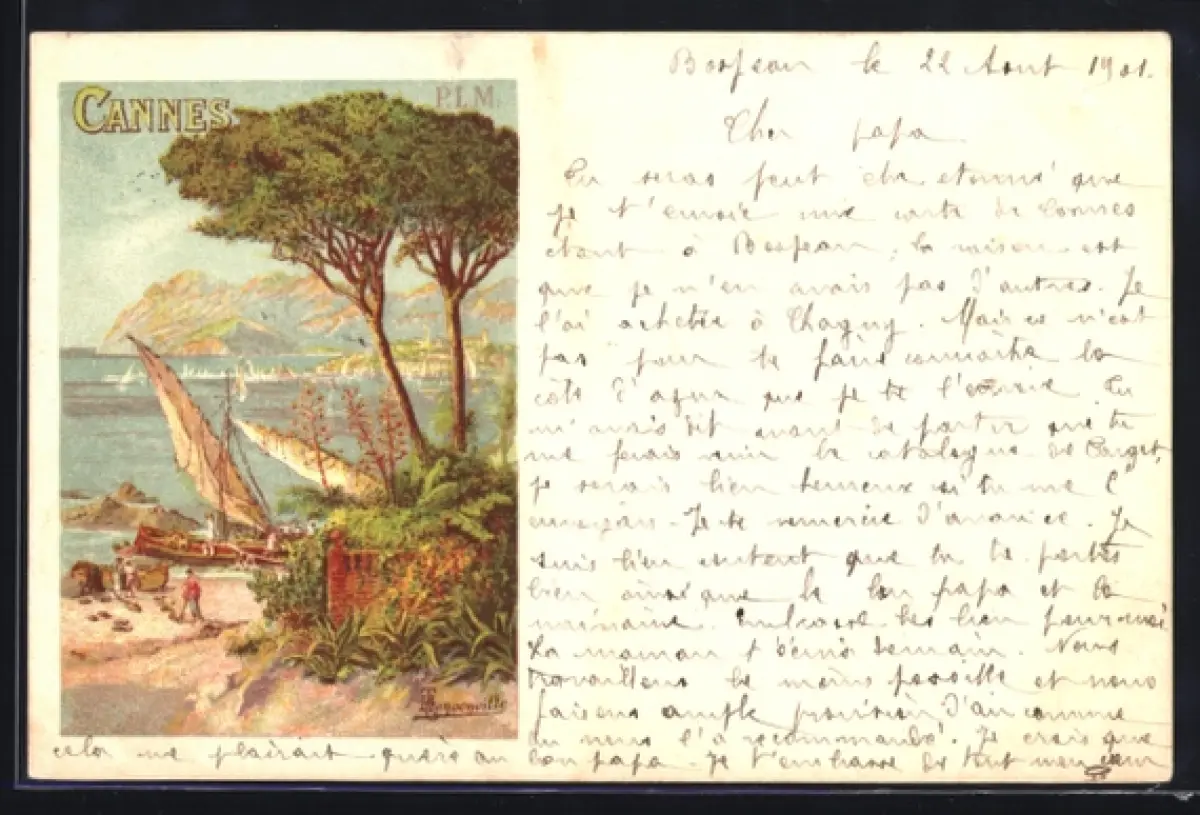 CANNES
P.L.M.
le 22 Aout 1901.
Cher papa
Tu seras peut etre etonné que
je t'envoie une carte de Cannes
etant à la raison est
que je n'en avais pas d'autres. Je
l'ai achetée à Chagny. Mais ce n'est
pas pour te faire connaitre la
côte d'azur que je te l'envoie. Tu
m'avais dit avant de partir que tu
me ferais venir le catalogue de
je serais bien heureux si tu me l'
envoyais. Je te remercie d'avance. Je
suis bien content que tu te portes
bien ainsi que le bon papa et la
Embrasse les bien pour moi
La maman t'écrira demain. Nous
travaillons le moins possible et nous
faisons ample provision d'air comme
tu nous l'a recommandé. Je crois que
cela ne plairait guère au bon papa. Je t'embrasse de tout mon cœur